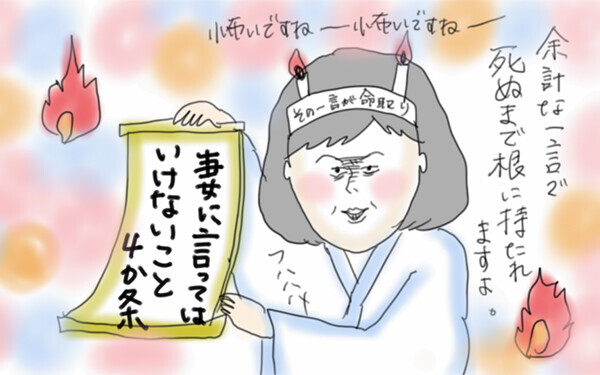 怖いですねー怖いですねー
余計な一言で
死ぬまで根に持たれ
ますよ。
その一言が命取り
妻に言っては
いけないこと
4か条
フハハハハ